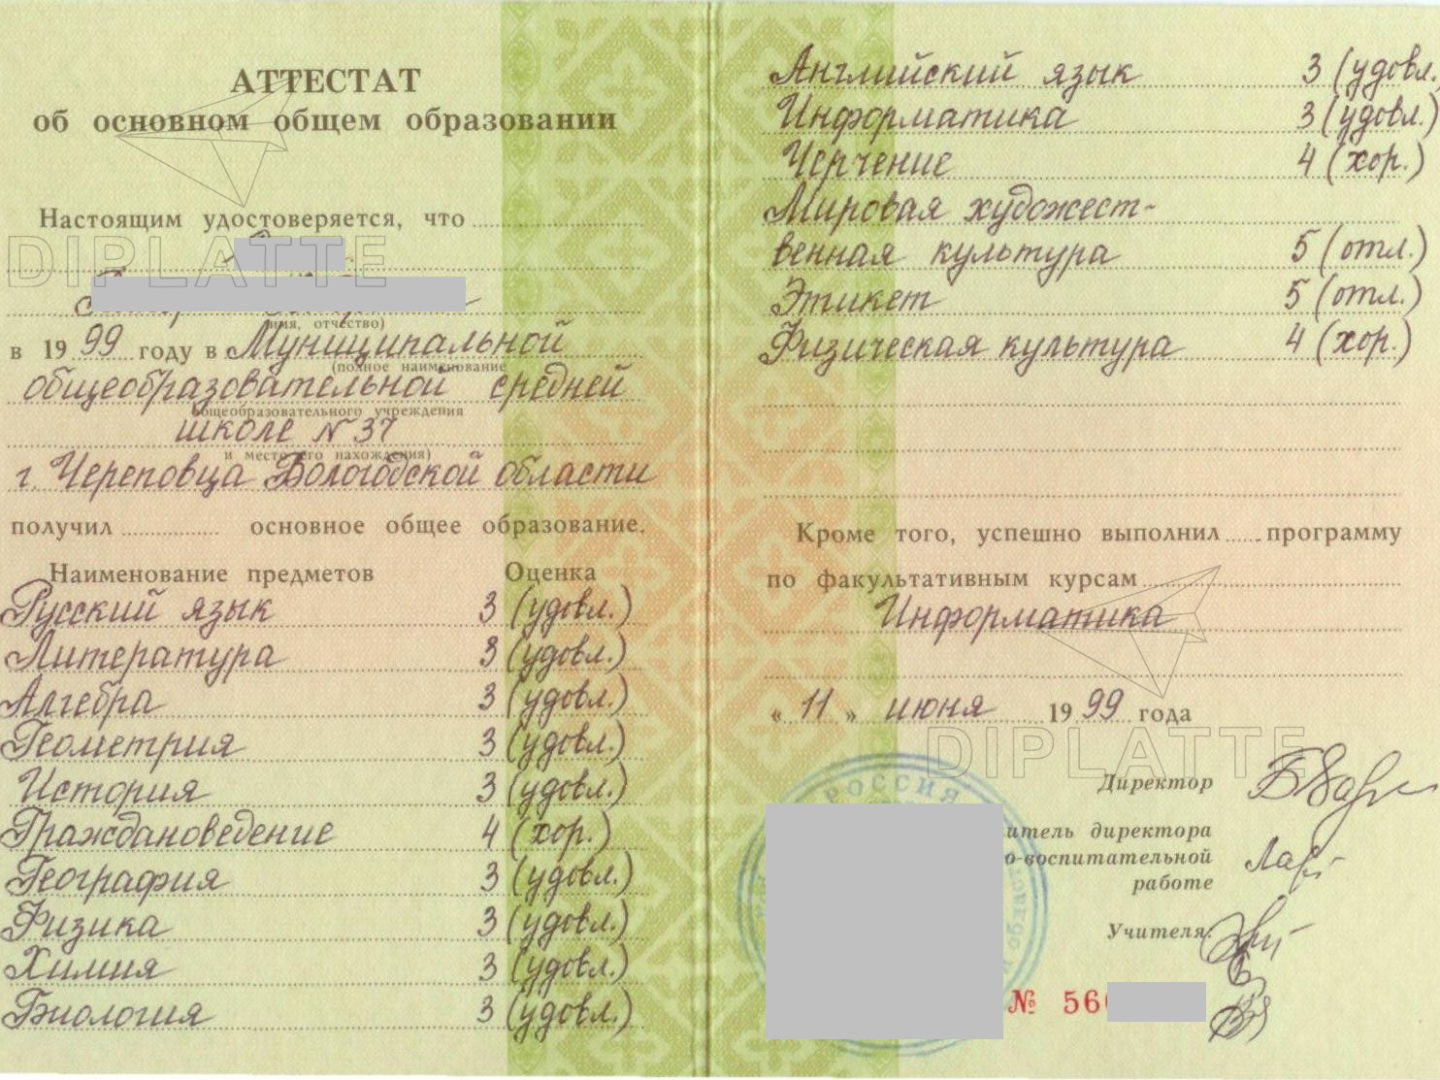 АТТЕСТАТ
об основном общем образовании
Настоящим удостоверяется, что
DIPLATTE
(имя, отчество)
в 1999 году в Муниципальной
(полное наименование
общеобразовательной средней
общеобразовательного учреждения
школе № 37
и место его нахождения)
г. Череповца Вологодской области
получил основное общее образование.
Наименование предметов Оценка
Русский язык 3 (удовл.)
Литература 3 (удовл.)
Алгебра 3 (удовл.)
Геометрия 3 (удовл.)
История 3 (удовл.)
Граждановедение 4 (хор.)
География 3 (удовл.)
Физика 3 (удовл.)
Химия 3 (удовл.)
Биология 3 (удовл.)
Английский язык 3 (удовл.
Информатика 3 (удовл.)
Черчение 4 (хор.)
Мировая художест-
венная культура 5 (отл.)
Этикет 5 (отл.)
Физическая культура 4 (хор.)
Кроме того, успешно выполнил программу
по факультативным курсам
Информатика
« 11 » июня 1999 года
DIPLATTE
РОССИЯ
Директор
итель директора
о-воспитательной
работе
Учителя:
№ 56